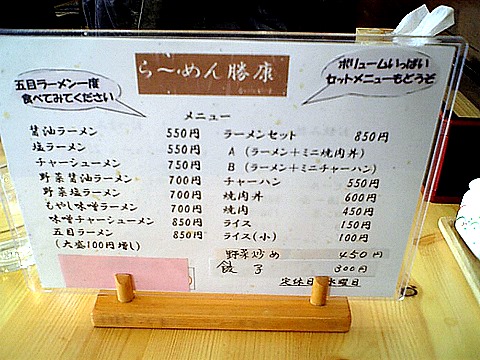 ら〜めん勝康
五目ラーメン一度
食べてみてください
ボリュームいっぱい
セットメニューもどうぞ
メニュー
醤油ラーメン 550円
塩ラーメン 550円
チャーシューメン 750円
野菜醤油ラーメン 700円
野菜塩ラーメン 700円
もやし味噌ラーメン 700円
味噌チャーシューメン 850円
五目ラーメン 850円
(大盛100円増し)
ラーメンセット 850円
A (ラーメン+ミニ焼肉丼)
B (ラーメン+ミニチャーハン)
チャーハン 550円
焼肉丼 600円
焼肉 450円
ライス 150円
ライス(小) 100円
野菜炒め 450円
餃子 300円
定休日 水曜日